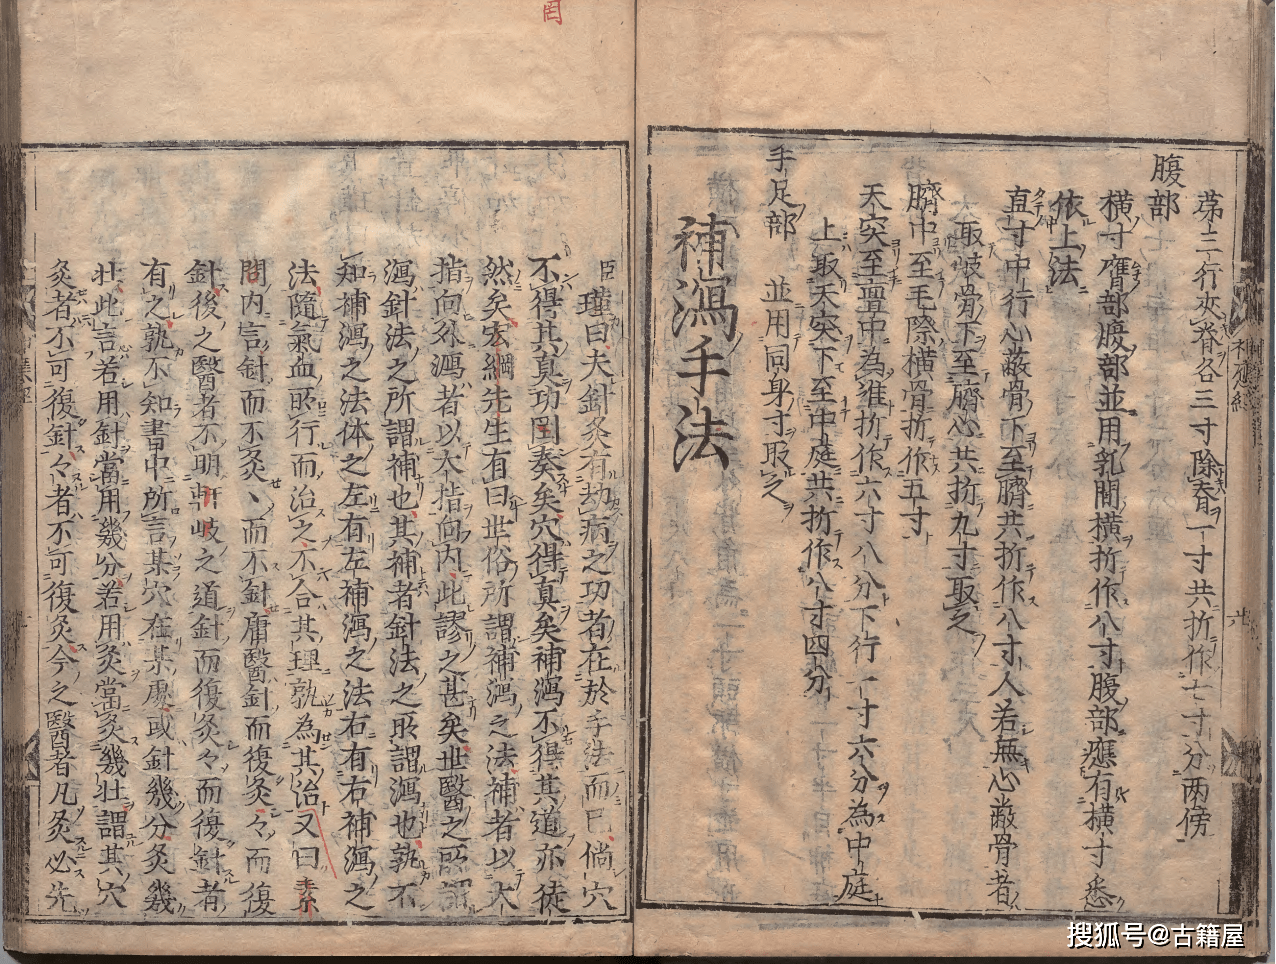 第三行夾脊各三寸除脊一寸共折作七寸分兩傍
腹部
橫寸膺部腹部並用乳間橫折作八寸腹部應有橫寸悉
依上法
直寸中行心蔽骨下至臍共折作八寸人若無心蔽骨者
取歧骨下至臍心共折九寸取之
臍中至毛際橫骨折作五寸
天突至亶中為准折作六寸八分下行一寸六分為中庭
上取天突下至中庭共折作八寸四分
手足部 並用同身寸取之
補瀉手法
臣瑾曰夫針灸有劫病之功者在於手法而已倘穴
不得其真功罔奏矣穴得真矣補瀉不得其道亦徒
然矣宏綱先生有曰世俗所謂補瀉之法補者以大
指向外瀉者以大指向内此謬之甚矣世醫之所謂
瀉針法之所謂補也其補者針法之所謂瀉也孰不
知補瀉之法体之左有左補瀉之法右有右補瀉之
法隨氣血所行而治之不合其理孰為其治又曰素
問内言針而不灸灸而不針庸醫針而復灸々而復
針後之醫者不明軒岐之道針而復灸々而復針者
有之孰不知書中所言某穴在某處或針幾分灸幾
壮此言若用針當用幾分若用灸當灸幾壮謂其穴
灸者不可復針々者不可復灸今之醫者凡灸必先
搜狐号@古籍屋